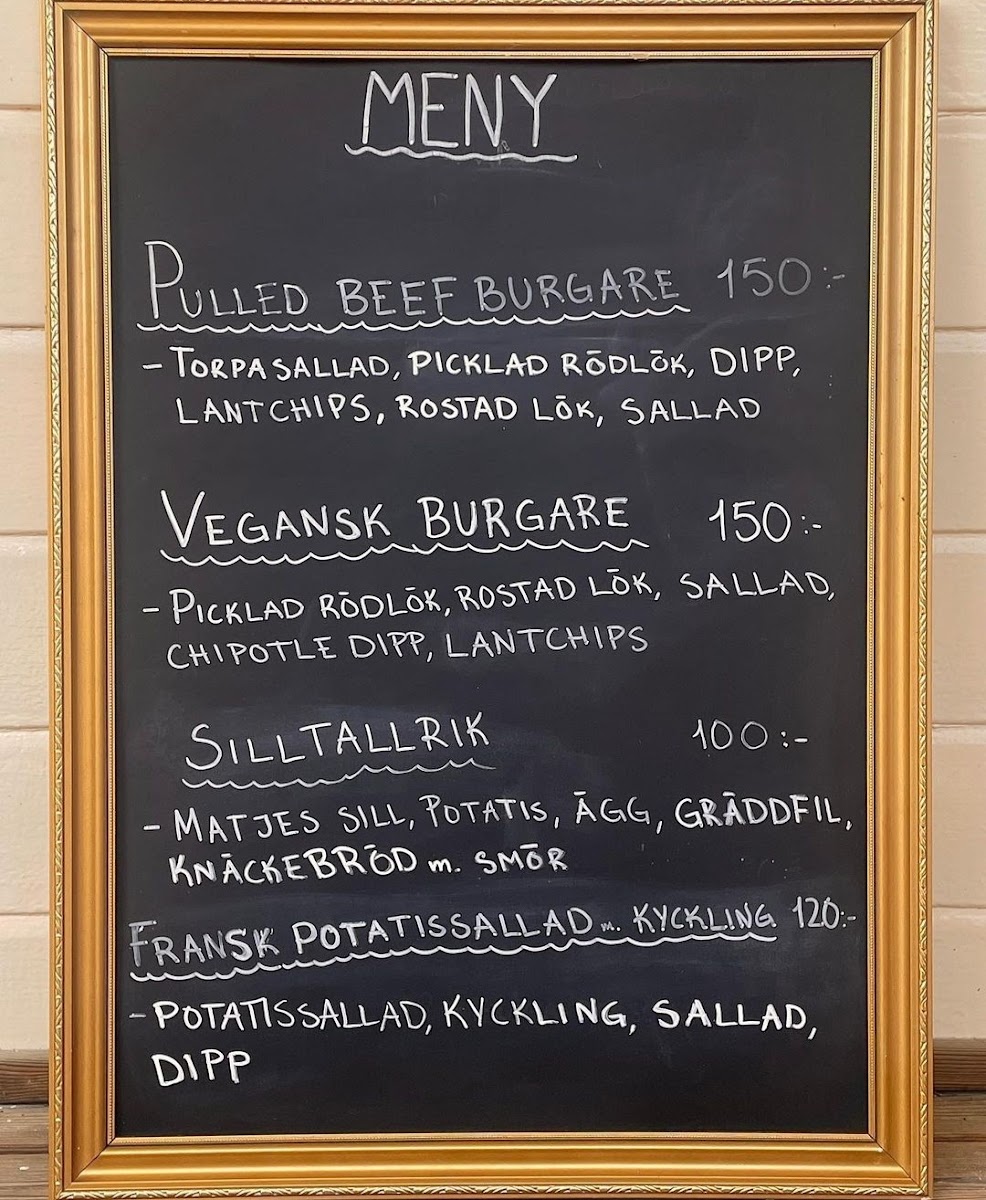 MENY
PULLED BEEF BURGARE 150:-
- TORPASALLAD, PICKLAD RÖDLÖK, DIPP,
LANTCHIPS, ROSTAD LÖK, SALLAD
VEGANSK BURGARE 150:-
- PICKLAD RÖDLÖK, ROSTAD LÖK, SALLAD,
CHIPOTLE DIPP, LANTCHIPS
SILLTALLRIK 100:-
- MATJES SILL, POTATIS, ÄGG, GRÄDDFIL,
KNÄCKEBRÖD m. SMÖR
FRANSK POTATISSALLAD m. KYCKLING 120:-
- POTATISSALLAD, KYCKLING, SALLAD,
DIPP